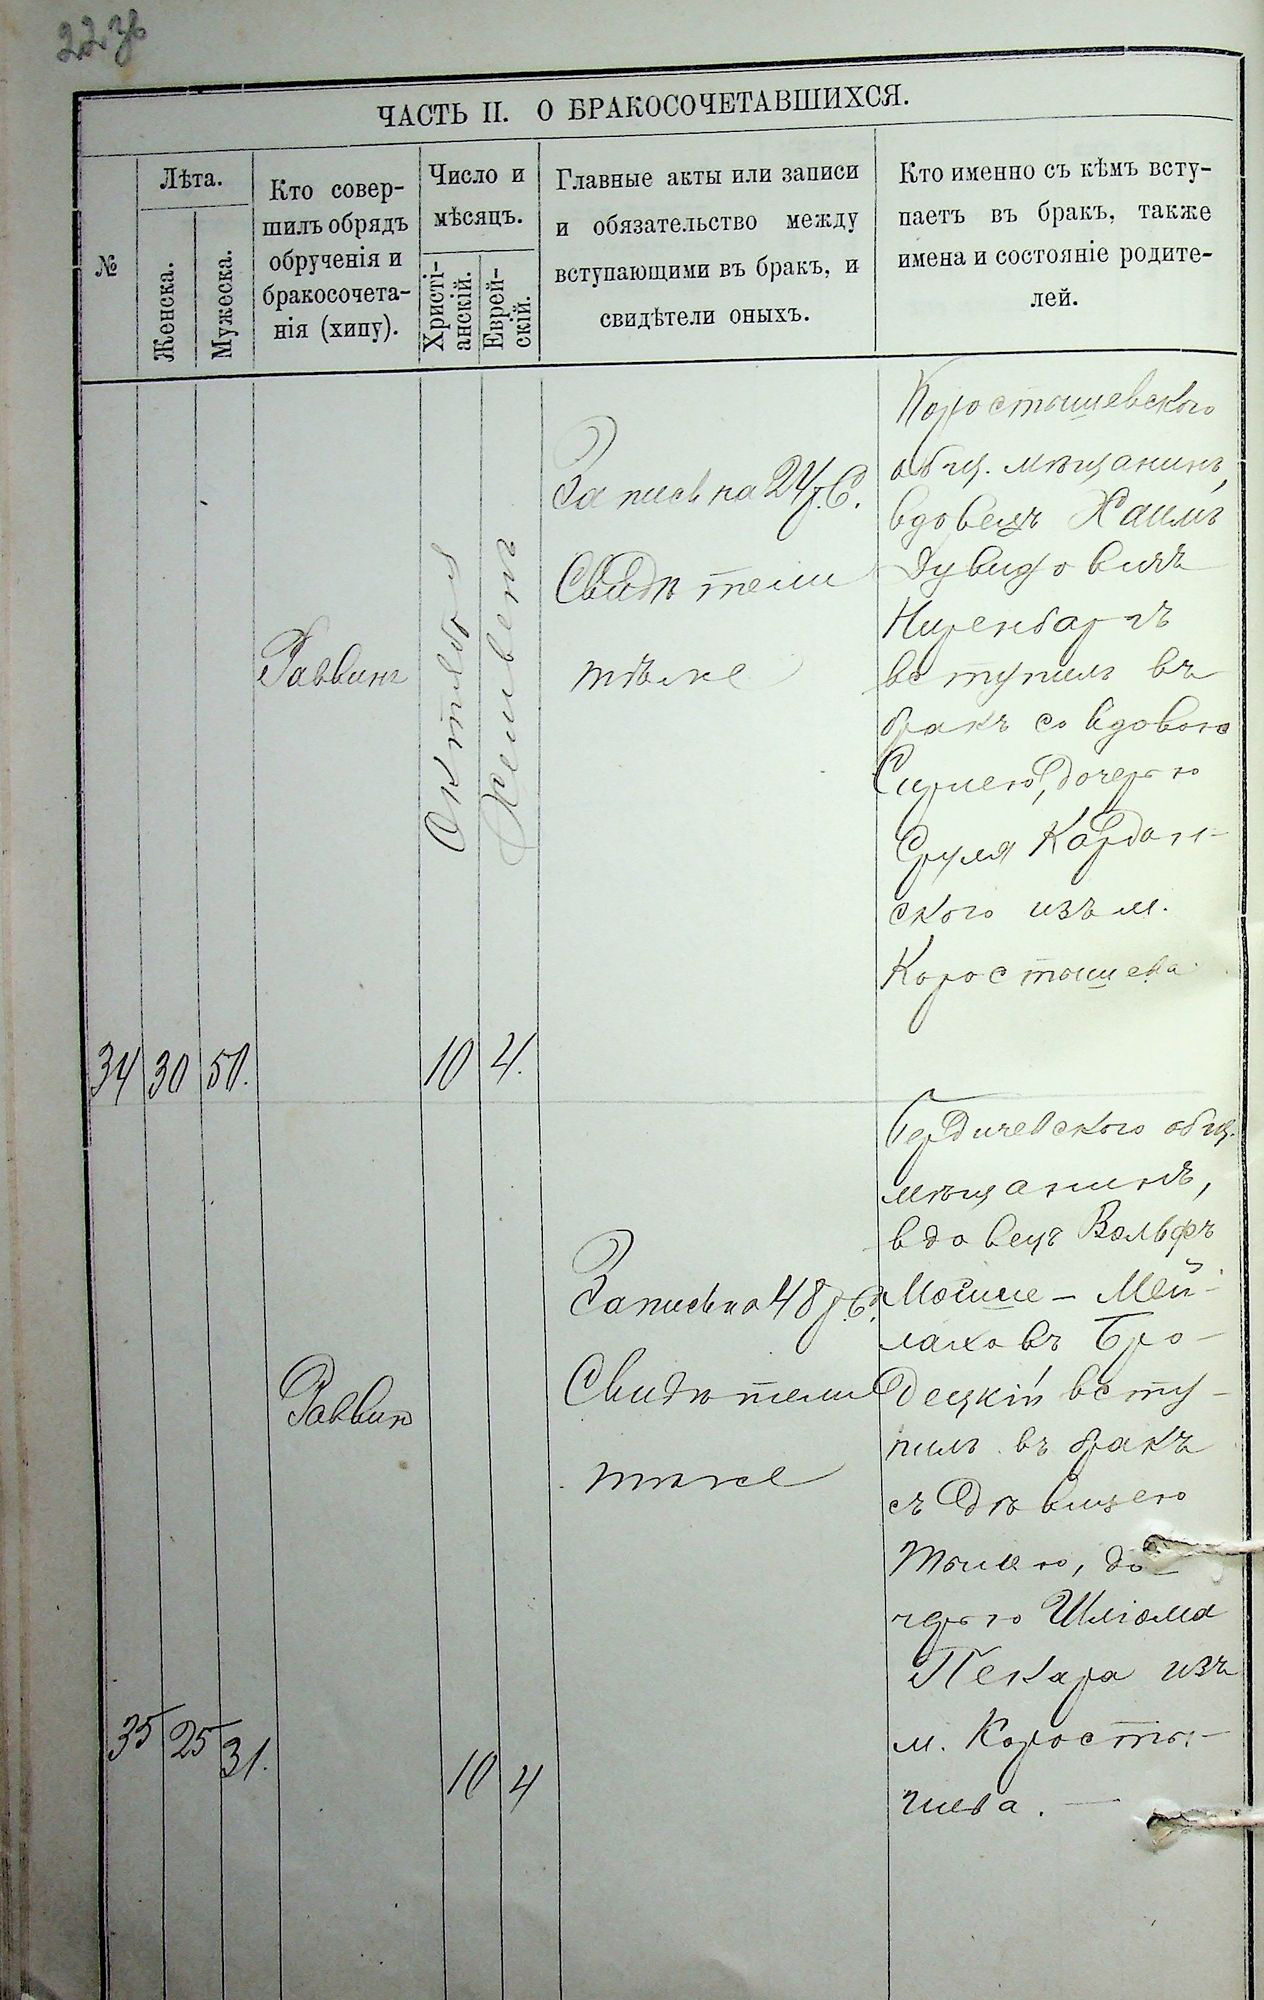 ЧАСТЬ II. О БРАКОСОЧЕТАВШИХСЯ.
№
Лѣта.
Женска.
Мужеска.
Кто совер-
шилъ обрядъ
обрученія и
бракосочета-
нія (хипу).
Число и
мѣсяцъ.
Христі-
анскій.
Еврей-
скій.
Главные акты или записи
и обязательство между
вступающими въ бракъ, и
свидѣтели оныхъ.
Кто именно съ кѣмъ всту-
паетъ въ бракъ, также
имена и состояніе родите-
лей.
34
30
50.
Раввинъ
Октября
10
4.
Запись на 24 р. С.
Свидѣтели
тѣже
Коростышевского
общ. мѣщанинъ,
вдовецъ Хаимъ
Дувидовичъ
Ниренбаргъ
вступилъ въ
бракъ со вдовою
Сурлею, дочерью
Сруля Кордон-
ского изъ м.
Коростышева
35
25
31.
Раввин
10
4
Запись на 48 р. С.
Свидѣтели
тѣже
Бердичевского общ.
мѣщанинъ,
вдовецъ Вольфъ
Мошше - Мей-
лаховъ Бро-
децкій всту-
пилъ въ бракъ
съ дѣвицею
до-
черью Шліома
Пекара изъ
м. Коросты-
шева. —